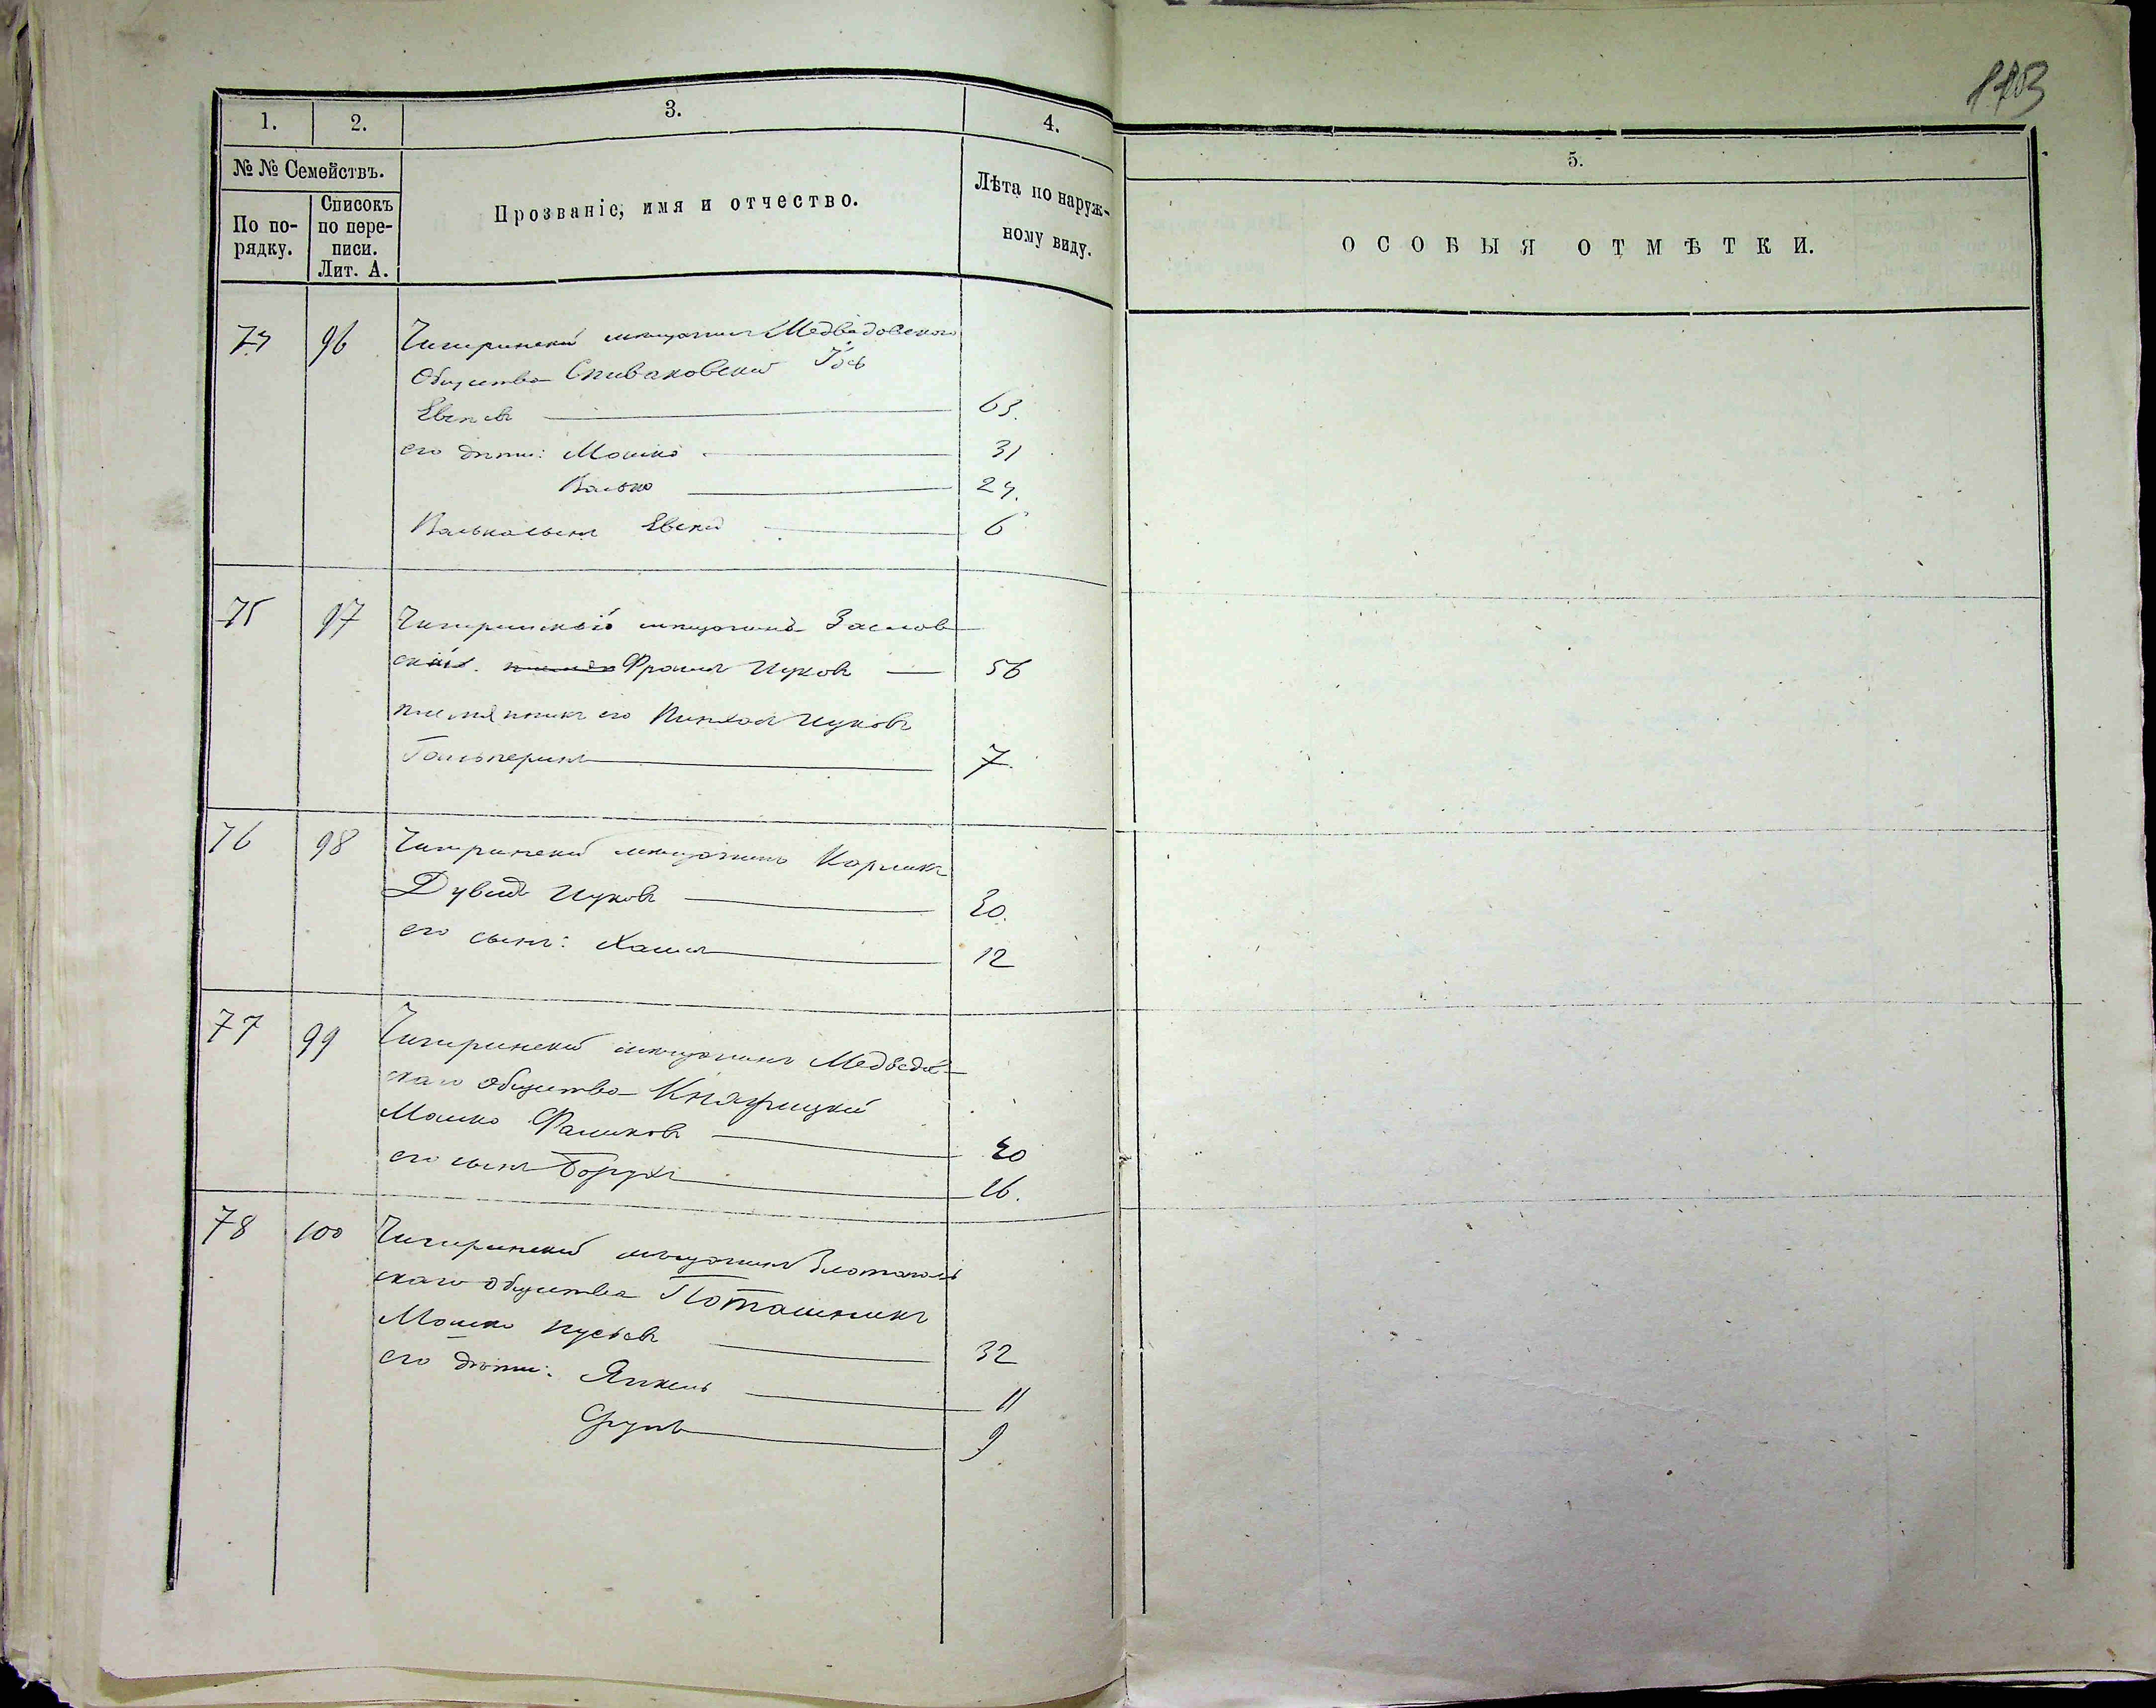 173
1. 2. 3. 4. 5.
№ № Семействъ.
По порядку.
Списокъ по переписи. Лит. А.
Прозваніе, имя и отчество.
Лѣта по наружному виду.
ОСОБЫЯ ОТМѢТКИ.
96 Чигиринскій мѣщанинъ Медвѣдовскаго
Общества Спиваковскій Іось
63.
его дѣти: Мошко 31
Валько
Валька сынъ 6
75 97 Чигиринскій мѣщанинъ Заслав
скій Фроимъ Ицковъ 56
племянникъ его Пинхасъ Ицковъ
Гальперинъ 7
76 98 Чигиринскій мѣщанинъ Карликъ
Дувидъ Ицковъ
его сынъ: Хаимъ 12
77 99 Чигиринскій мѣщанинъ Медвѣдов
скаго общества
Мошко Фаликовъ
его сынъ Борухъ 16.
78 100 Чигиринскій мѣщанинъ Златополь
скаго общества Поташникъ
Мошко 32
его дѣти: Янкель 11
9